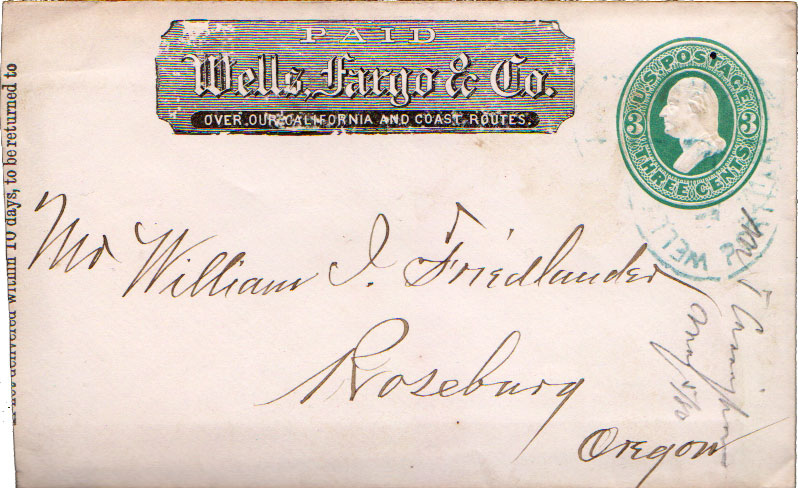 PAID
Wells, Fargo & Co.
OVER OUR CALIFORNIA AND COAST ROUTES.
U.S. POSTAGE
3 3
THREE CENTS
WELLS
Mr William I. Friedlander
Roseburg
Oregon
If not delivered within 10 days, to be returned to